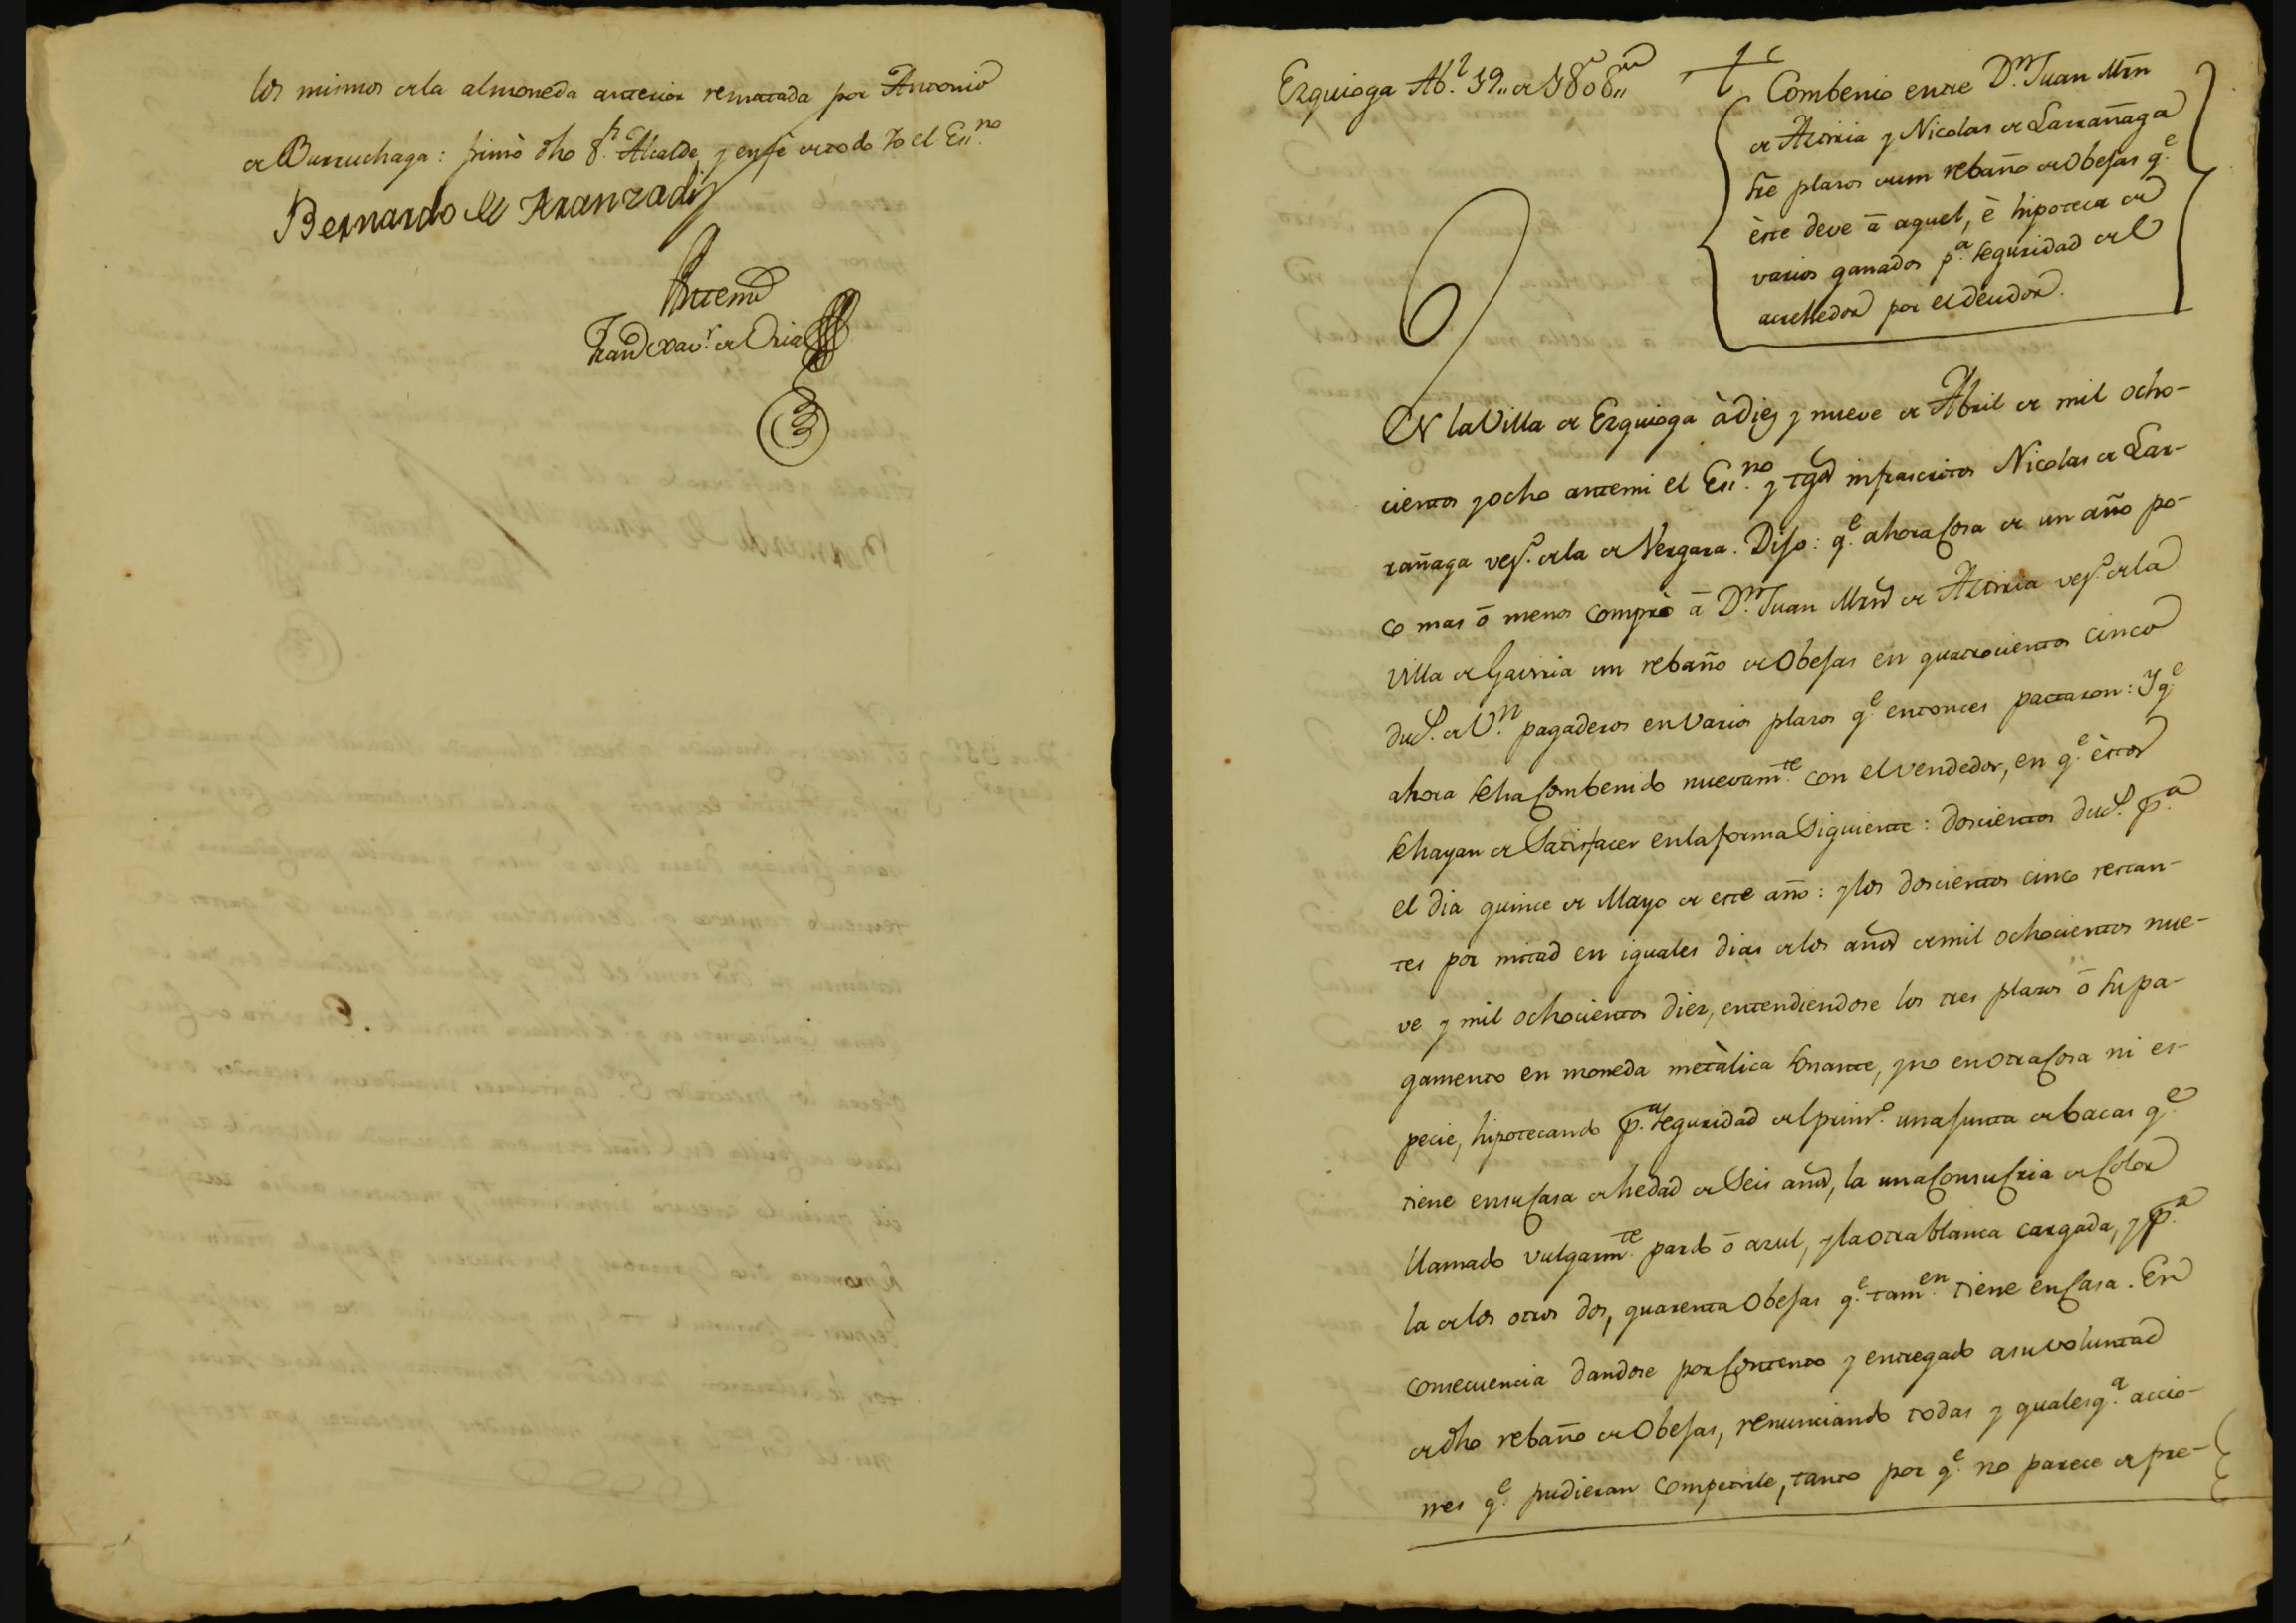 los mismos de la almoneda anterior rematada por Antonio
de Burruchaga: firmò dho S.r Alcalde, y enfè de todo Yo el Es.no
Bernardo de Aranzadi
Antemi
Fran.co Xav.r de Oria
Ezquioga Ab.l 19,, de 1808,,
Combenio entre D.n Juan Mrn
de Aztiria y Nicolas de Larrañaga
sre plazos de un rebaño de Obejas q.e
èste deve â aquel, è hipoteca de
varios ganados p.a seguridad del
acrehedor por el deudor.
EN la Villa de Ezquioga à diez y nueve de Abril de mil ocho-
cientos y ocho antemi el Es.no y tgos infrascritos Nicolas de Lar-
rañaga vez.o de la de Vergara. Dijo: q.e ahora cosa de un año po-
co mas ô menos comprò â D.n Juan Mrn de Aztiria vez.o de la
Villa de Gaviria un rebaño de Obejas en quatrocientos cinco
duc.s de V.n pagaderos en varios plazos q.e entonces pactaron: Y q.e
ahora seha combenido nuevam.te con el vendedor, en q.e èstos
sehayan de Satisfacer en la forma Siguiente: doscientos duc.s p.a
el dia quince de Mayo de este año: y los doscientos cinco restan-
tes por mitad en iguales dias de los años de mil ochocientos nue-
ve y mil ochocientos diez, entendiendose los tres plazos ô su pa-
gamento en moneda metàlica sonante, y no en otra cosa ni es-
pecie, hipotecando p.a seguridad del prim.o una junta de bacas q.e
tiene en su casa de hedad de Seis años, la una con su cria de color
llamado vulgarm.te pardo ô azul, y la otra blanca cargada, y p.a
la de los otros dos, quarenta Obejas q.e tam.en tiene en casa. En
consecuencia dandose por contento y entregado a su voluntad
de dho rebaño de Obejas, renunciando todas y qualesq.a accio-
nes q.e pudieran competirle, tanto por q.e no parece de pre-